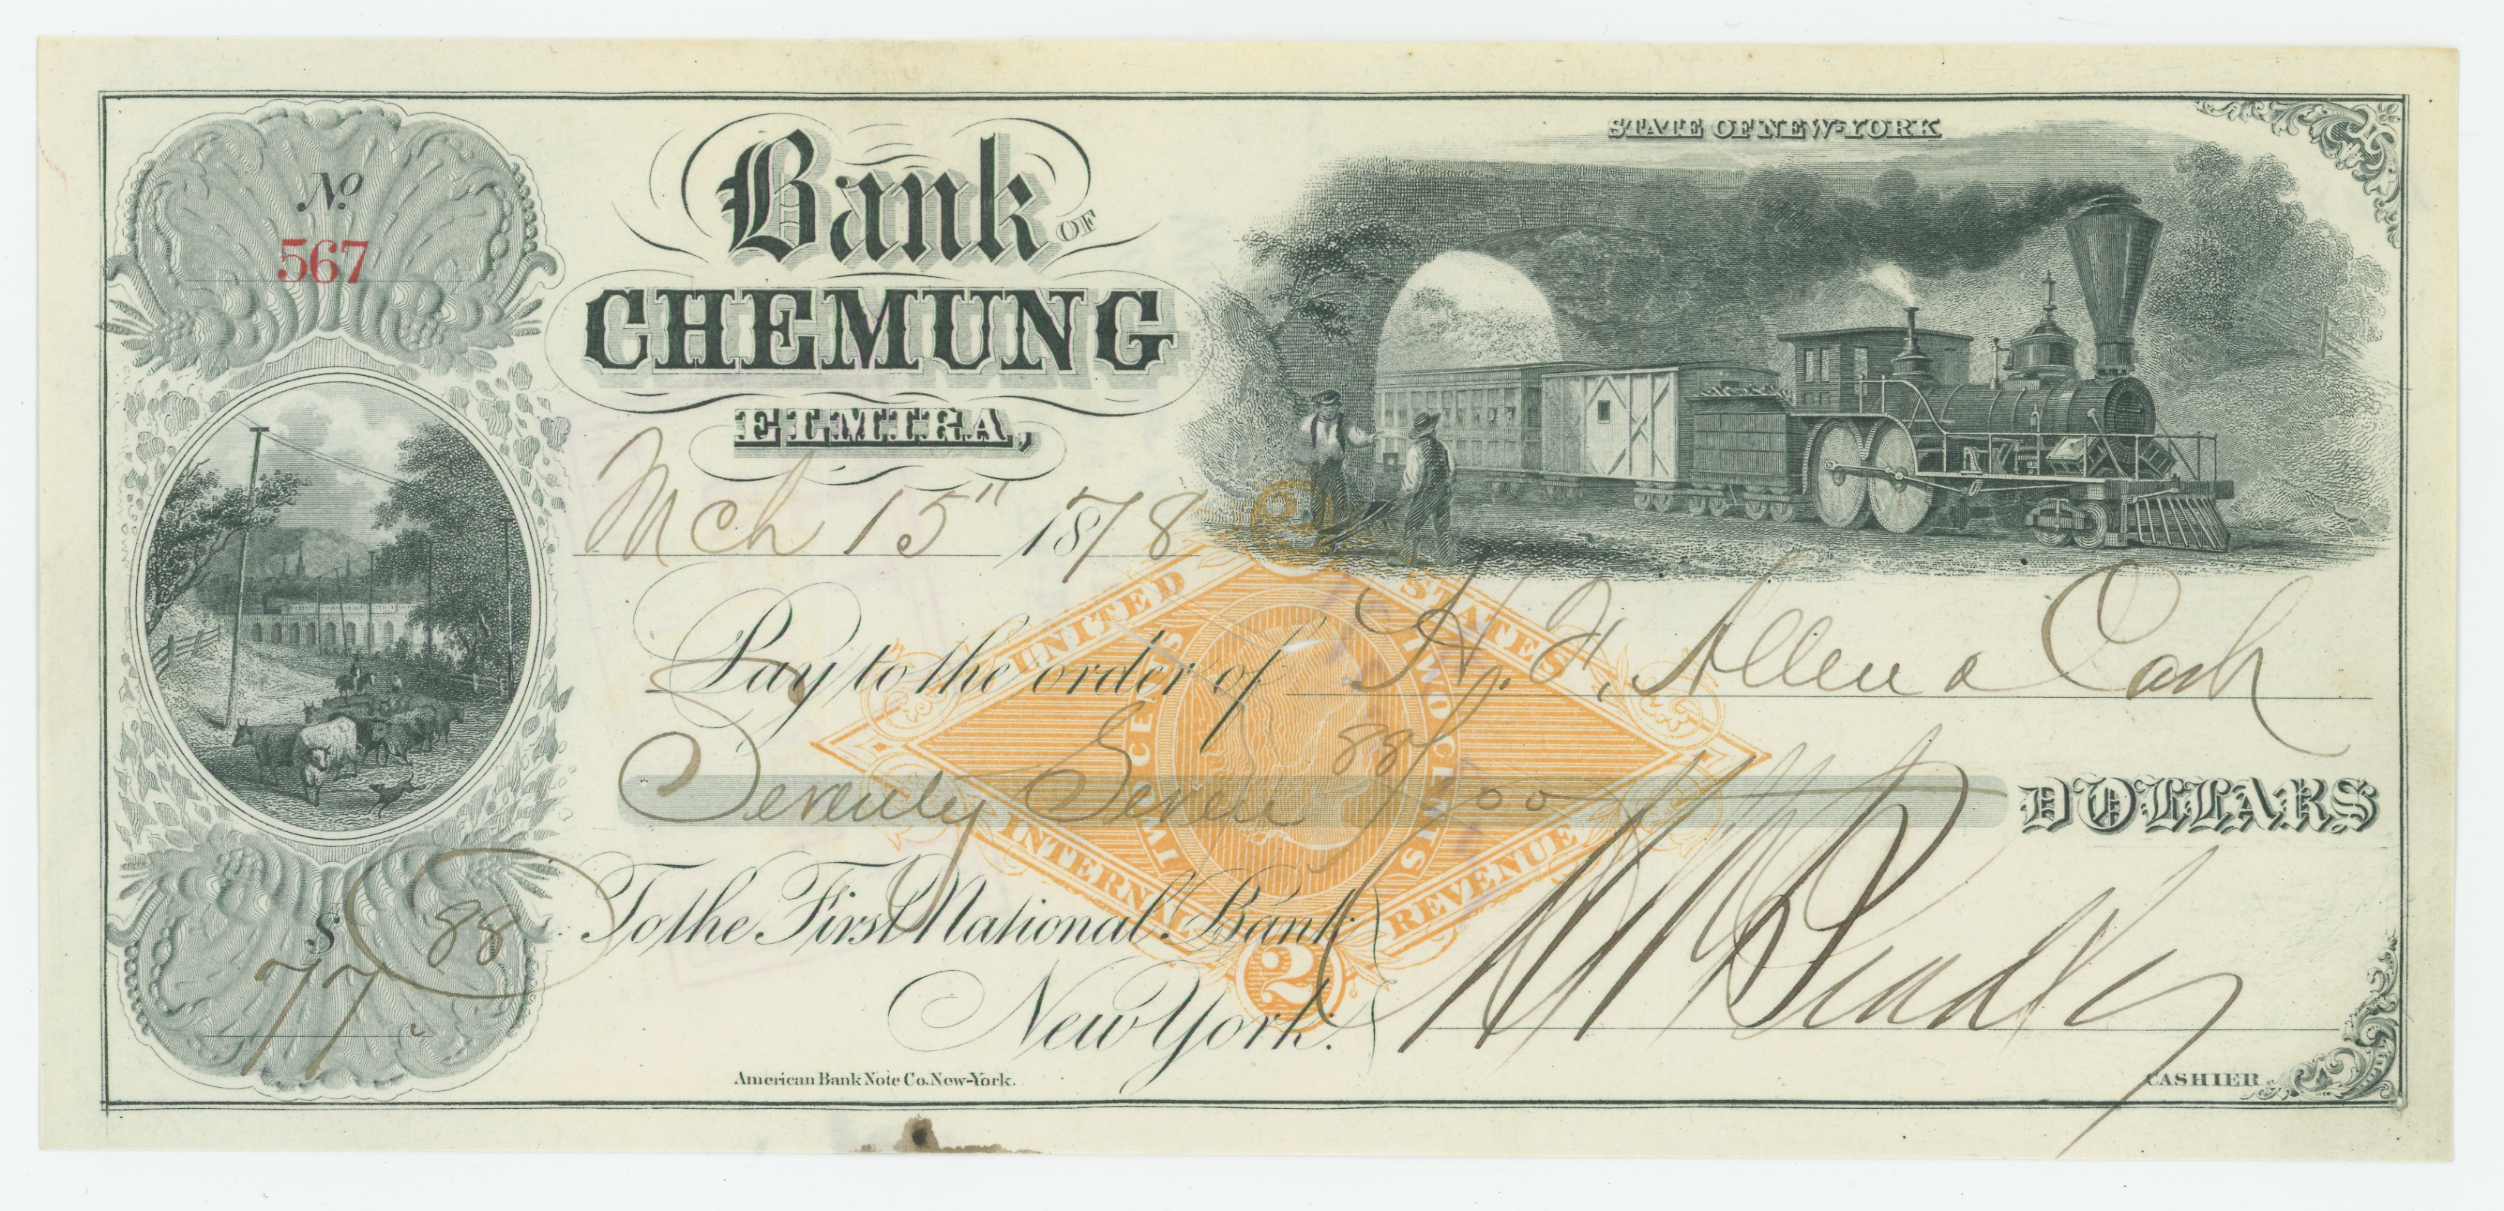 STATE OF NEW-YORK
No.
567
Bank OF
CHEMUNG
ELMIRA,
Mch 15" 1878
Pay to the order of H. F. Allen a Cash
Seventy Seven 88/00 DOLLARS
$ 77 88
To the First National Bank
New York.
UNITED STATES
INTERNAL REVENUE
TWO CENTS
TWO CENTS
2
2
American Bank Note Co. New-York.
CASHIER